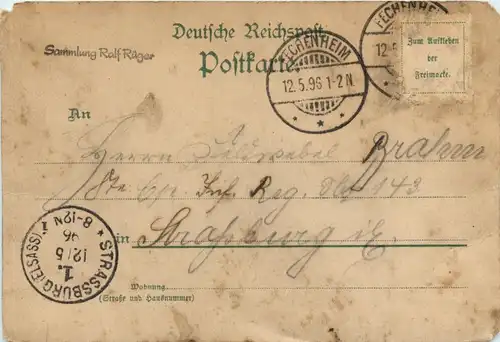 Deutsche Reichspost
Postkarte
Sammlung Ralf Rüger
FECHENHEIM
12.5.96 1-2N
FECHENHEIM
12.5
Zum Aufkleben
der
Freimarke.
An
Herrn Feldwebel Brahm
Cp. Inf. Reg. No 143
in Straßburg i/E.
STRASSBURG (ELSASS)
1.
12/5
96
8-12N
Wohnung
(Straße und Hausnummer)